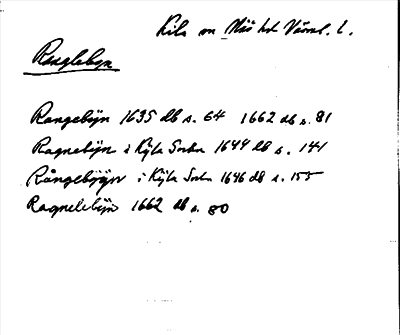 Kila sn Näs hd Värml. l.
Ranglebyn
Rangebÿn 1635 db s. 64 1662 db s. 81
Ragnebÿn i Kÿla Sochn 1644 db s. 141
Rångebÿyn i Kÿla Sochn 1646 db s. 155
Ragnelebÿn 1662 db s. 80